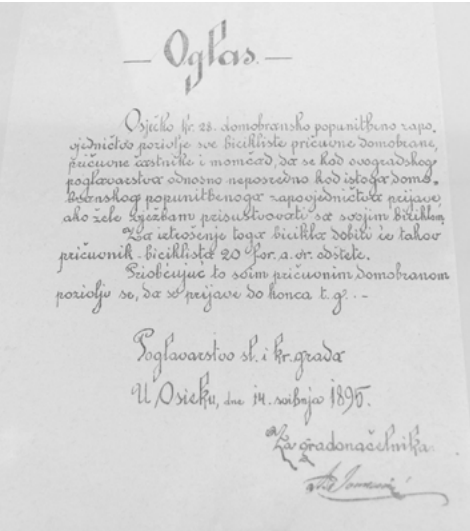 — Oglas. —
Osječko kr. 28. domobransko popunitbeno zapo-
vjedničtvo pozivlje sve bicikliste pričuvne domobrane,
pričuvne častnike i momčad, da se kod ovogradskog
poglavarstva odnosno neposredno kod istoga domo-
branskog popunitbenoga zapovjedničtva prijave,
ako žele vježbam prisustvovati sa svojim biciklem
Za istrošenje toga bicikla dobiti će takov
pričuvnik-biciklista 20 for. a. vr. odštete.
Priobćujuć to svim pričuvnim domobranom
pozivlju se, da se prijave do konca t. g. -
Poglavarstvo sl. i kr. grada
U Osieku, dne 14. svibnja 1895.
Za gradonačelnika: